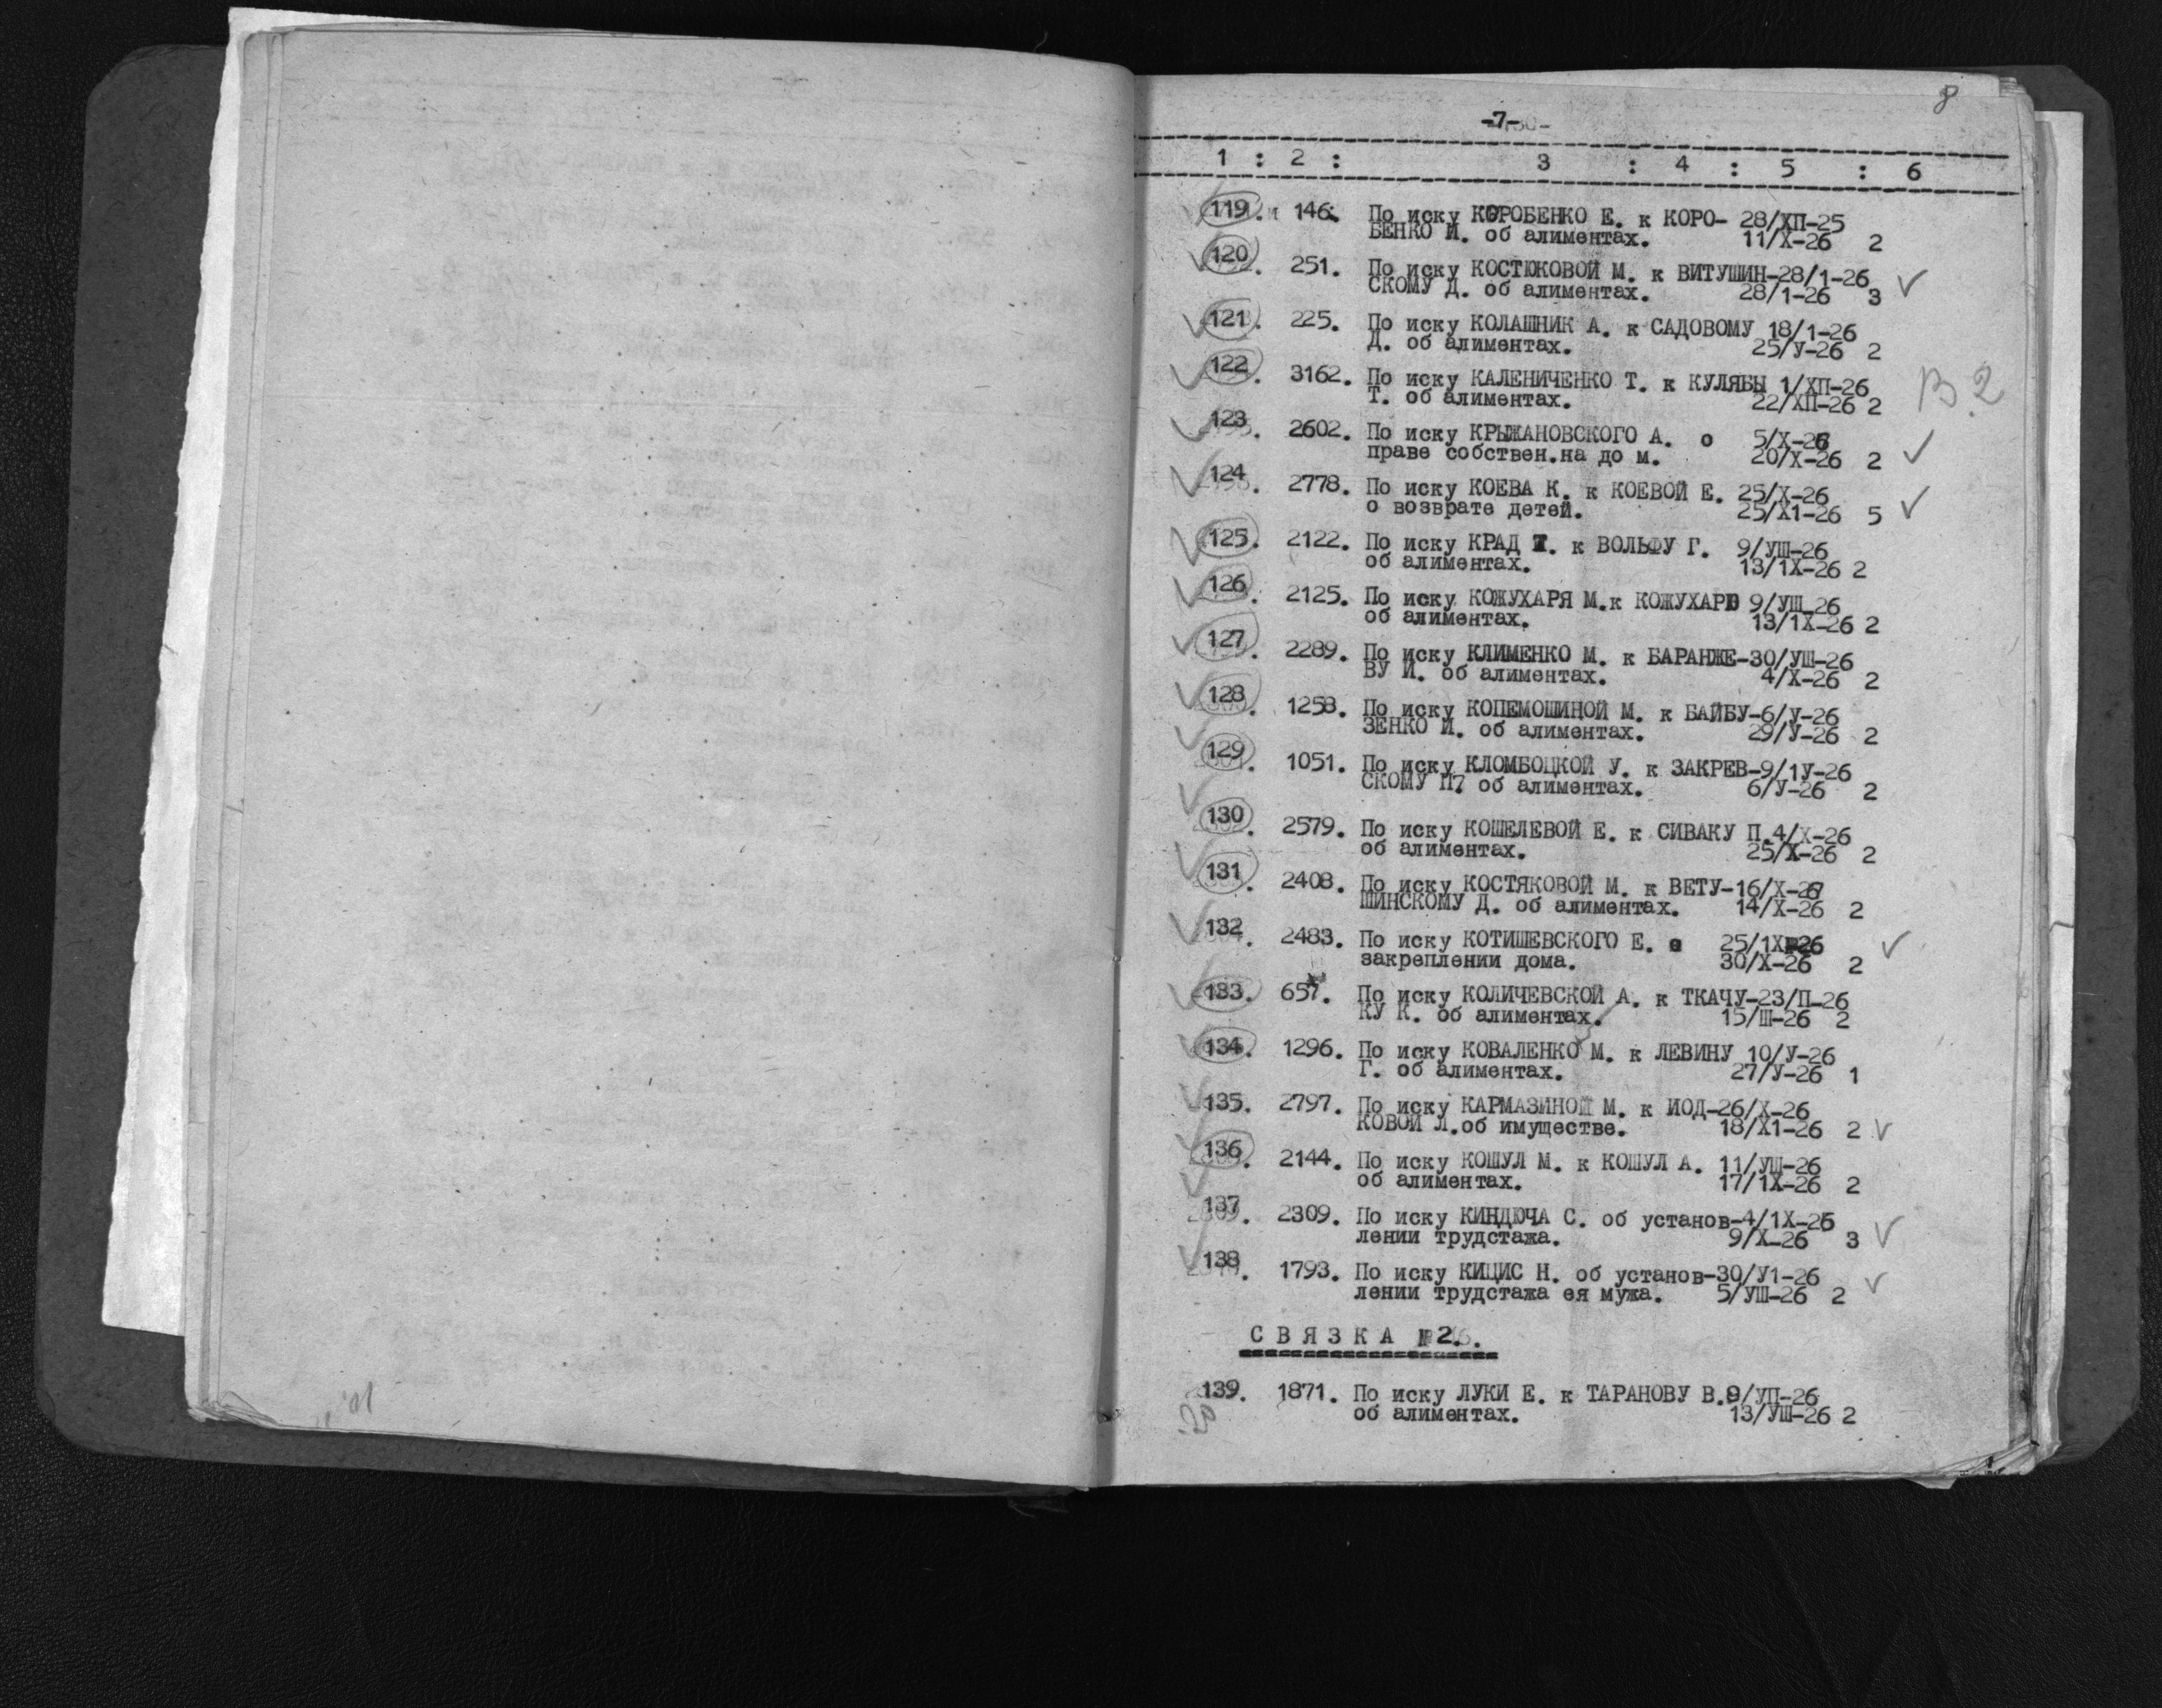 8
-7-
1 : 2 : 3 : 4 : 5 : 6
119. 146. По иску КОРОБЕНКО Е. к КОРО- 28/ХП-25
БЕНКО И. об алиментах. 11/Х-26 2
120. 251. По иску КОСТЮКОВОЙ М. к ВИТУШИН-28/1-26
СКОМУ Д. об алиментах. 28/1-26 3
121. 225. По иску КОЛАШНИК А. к САДОВОМУ 18/1-26
Д. об алиментах. 25/У-26 2
122. 3162. По иску КАЛЕНИЧЕНКО Т. к КУЛЯБЫ 1/ХП-26
Т. об алиментах. 22/ХП-26 2 В.2
123. 2602. По иску КРЫЖАНОВСКОГО А. о 5/Х-26
праве собствен.на до м. 20/Х-26 2
124. 2778. По иску КОЕВА К. к КОЕВОЙ Е. 25/Х-26
о возврате детей. 25/Х1-26 5
125. 2122. По иску КРАД к ВОЛЬФУ Г. 9/УШ-26
об алиментах. 13/1Х-26 2
126. 2125. По иску КОЖУХАРЯ М.к КОЖУХАРЮ 9/УШ-26
об алиментах. 13/1Х-26 2
127. 2289. По иску КЛИМЕНКО М. к БАРАНЖЕ-30/УШ-26
ВУ И. об алиментах. 4/Х-26 2
128. 1258. По иску КОПЕМОШИНОЙ М. к БАЙБУ-6/У-26
ЗЕНКО И. об алиментах. 29/У-26 2
129. 1051. По иску КЛОМБОЦКОЙ У. к ЗАКРЕВ-9/1У-26
СКОМУ П7 об алиментах. 6/У-26 2
130. 2579. По иску КОШЕЛЕВОЙ Е. к СИВАКУ П.4/Х-26
об алиментах. 25/Х-26 2
131. 2408. По иску КОСТЯКОВОЙ М. к ВЕТУ-16/Х-26
ШИНСКОМУ Д. об алиментах. 14/Х-26 2
132. 2483. По иску КОТИШЕВСКОГО Е. о 25/1Х-26
закреплении дома. 30/Х-26 2
133. 657. По иску КОЛИЧЕВСКОЙ А. к ТКАЧУ-23/П-26
КУ К. об алиментах. 15/Ш-26 2
134. 1296. По иску КОВАЛЕНКО М. к ЛЕВИНУ 10/У-26
Г. об алиментах. 27/У-26 1
135. 2797. По иску КАРМАЗИНОЙ М. к ИОД-26/Х-26
КОВОЙ Л.об имуществе. 18/Х1-26 2
136. 2144. По иску КОШУЛ М. к КОШУЛ А. 11/УШ-26
об алиментах. 17/1Х-26 2
137. 2309. По иску КИНДЮЧА С. об установ-4/1Х-26
лении трудстажа. 9/Х-26 3
138. 1793. По иску КИЦИС Н. об установ-30/У1-26
лении трудстажа ея мужа. 5/УШ-26 2
СВЯЗКА №2.
139. 1871. По иску ЛУКИ Е. к ТАРАНОВУ В.9/УП-26
об алиментах. 13/УШ-26 2